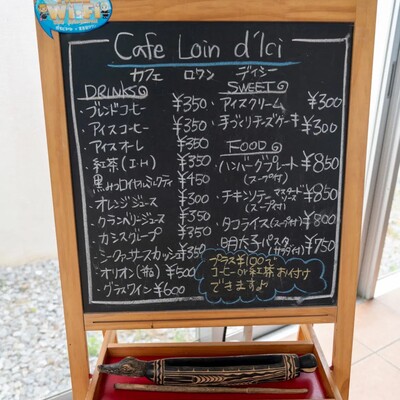 Cafe Loin d'Ici
カフェ ロワン ディシー
DRINKS
・ブレンドコーヒー ¥350
・アイスコーヒー ¥350
・アイスオーレ ¥350
・紅茶(I・H) ¥350
・黒みつロイヤルミルクティ ¥450
・オレンジジュース ¥300
・クランベリージュース ¥350
・カシスグレープ ¥350
・シークァーサースカッシュ ¥350
・オリオン ¥500
・グラスワイン ¥600
SWEET
・アイスクリーム ¥300
・手づくりチーズケーキ ¥300
FOOD
・ハンバーグプレート ¥850
(スープ付)
・チキンソテー マスタードソース ¥850
(スープ付)
・タコライス(スープ付) ¥800
・明太子パスタ ¥750
(サラダ付)
プラス¥100で
コーヒー or 紅茶 お付け
できますよ